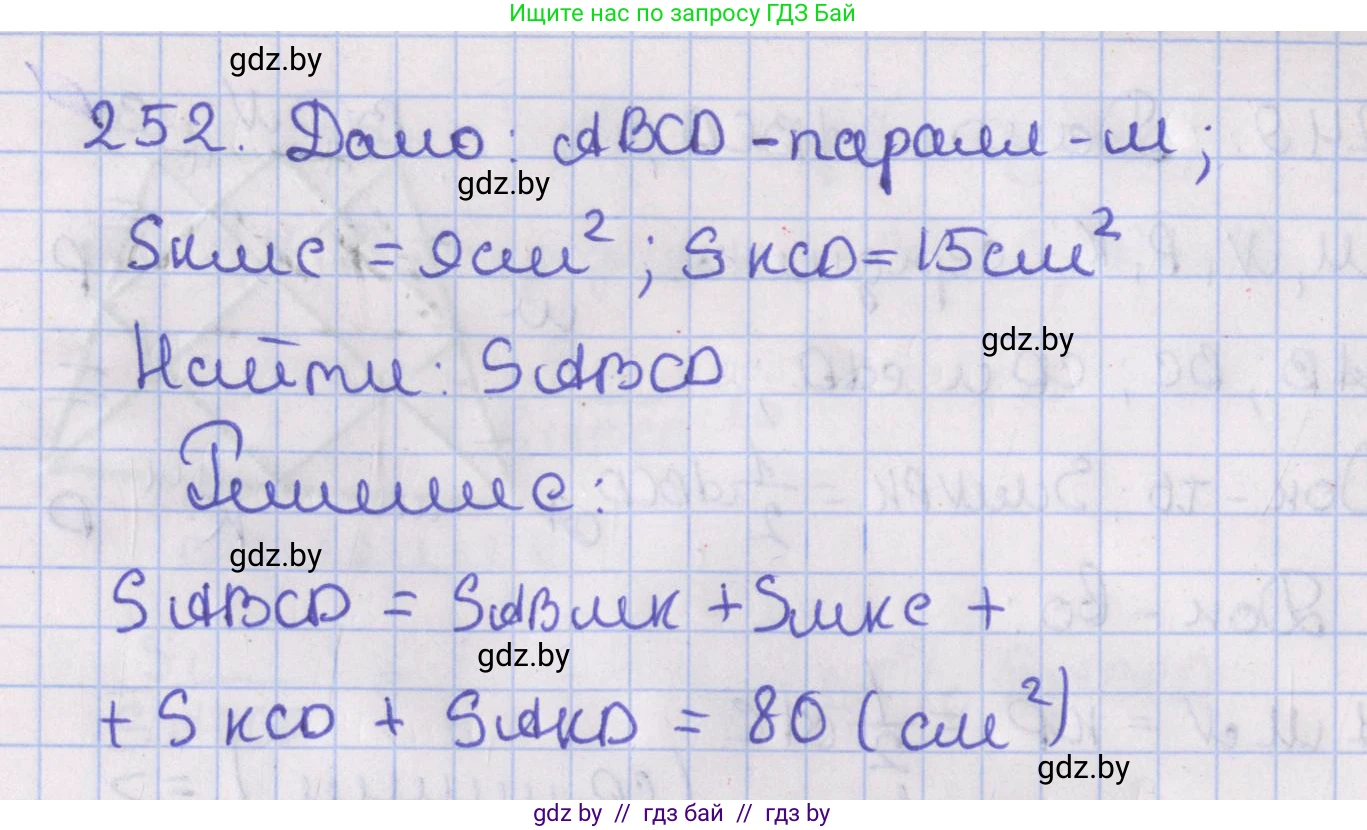 Ищите нас по запросу ГДЗ Бай
gdz.by
252. Дано: ABCD - паралл - м;
gdz.by
SKMC = 9см²; SKCD = 15см²
gdz.by
Найти: SABCD
Решение:
gdz.by
SABCD = SABMK + SMKC +
gdz.by
+ SKCD + SAKD = 80 (см²)
gdz.by
gdz by // гдз бай // гдз by